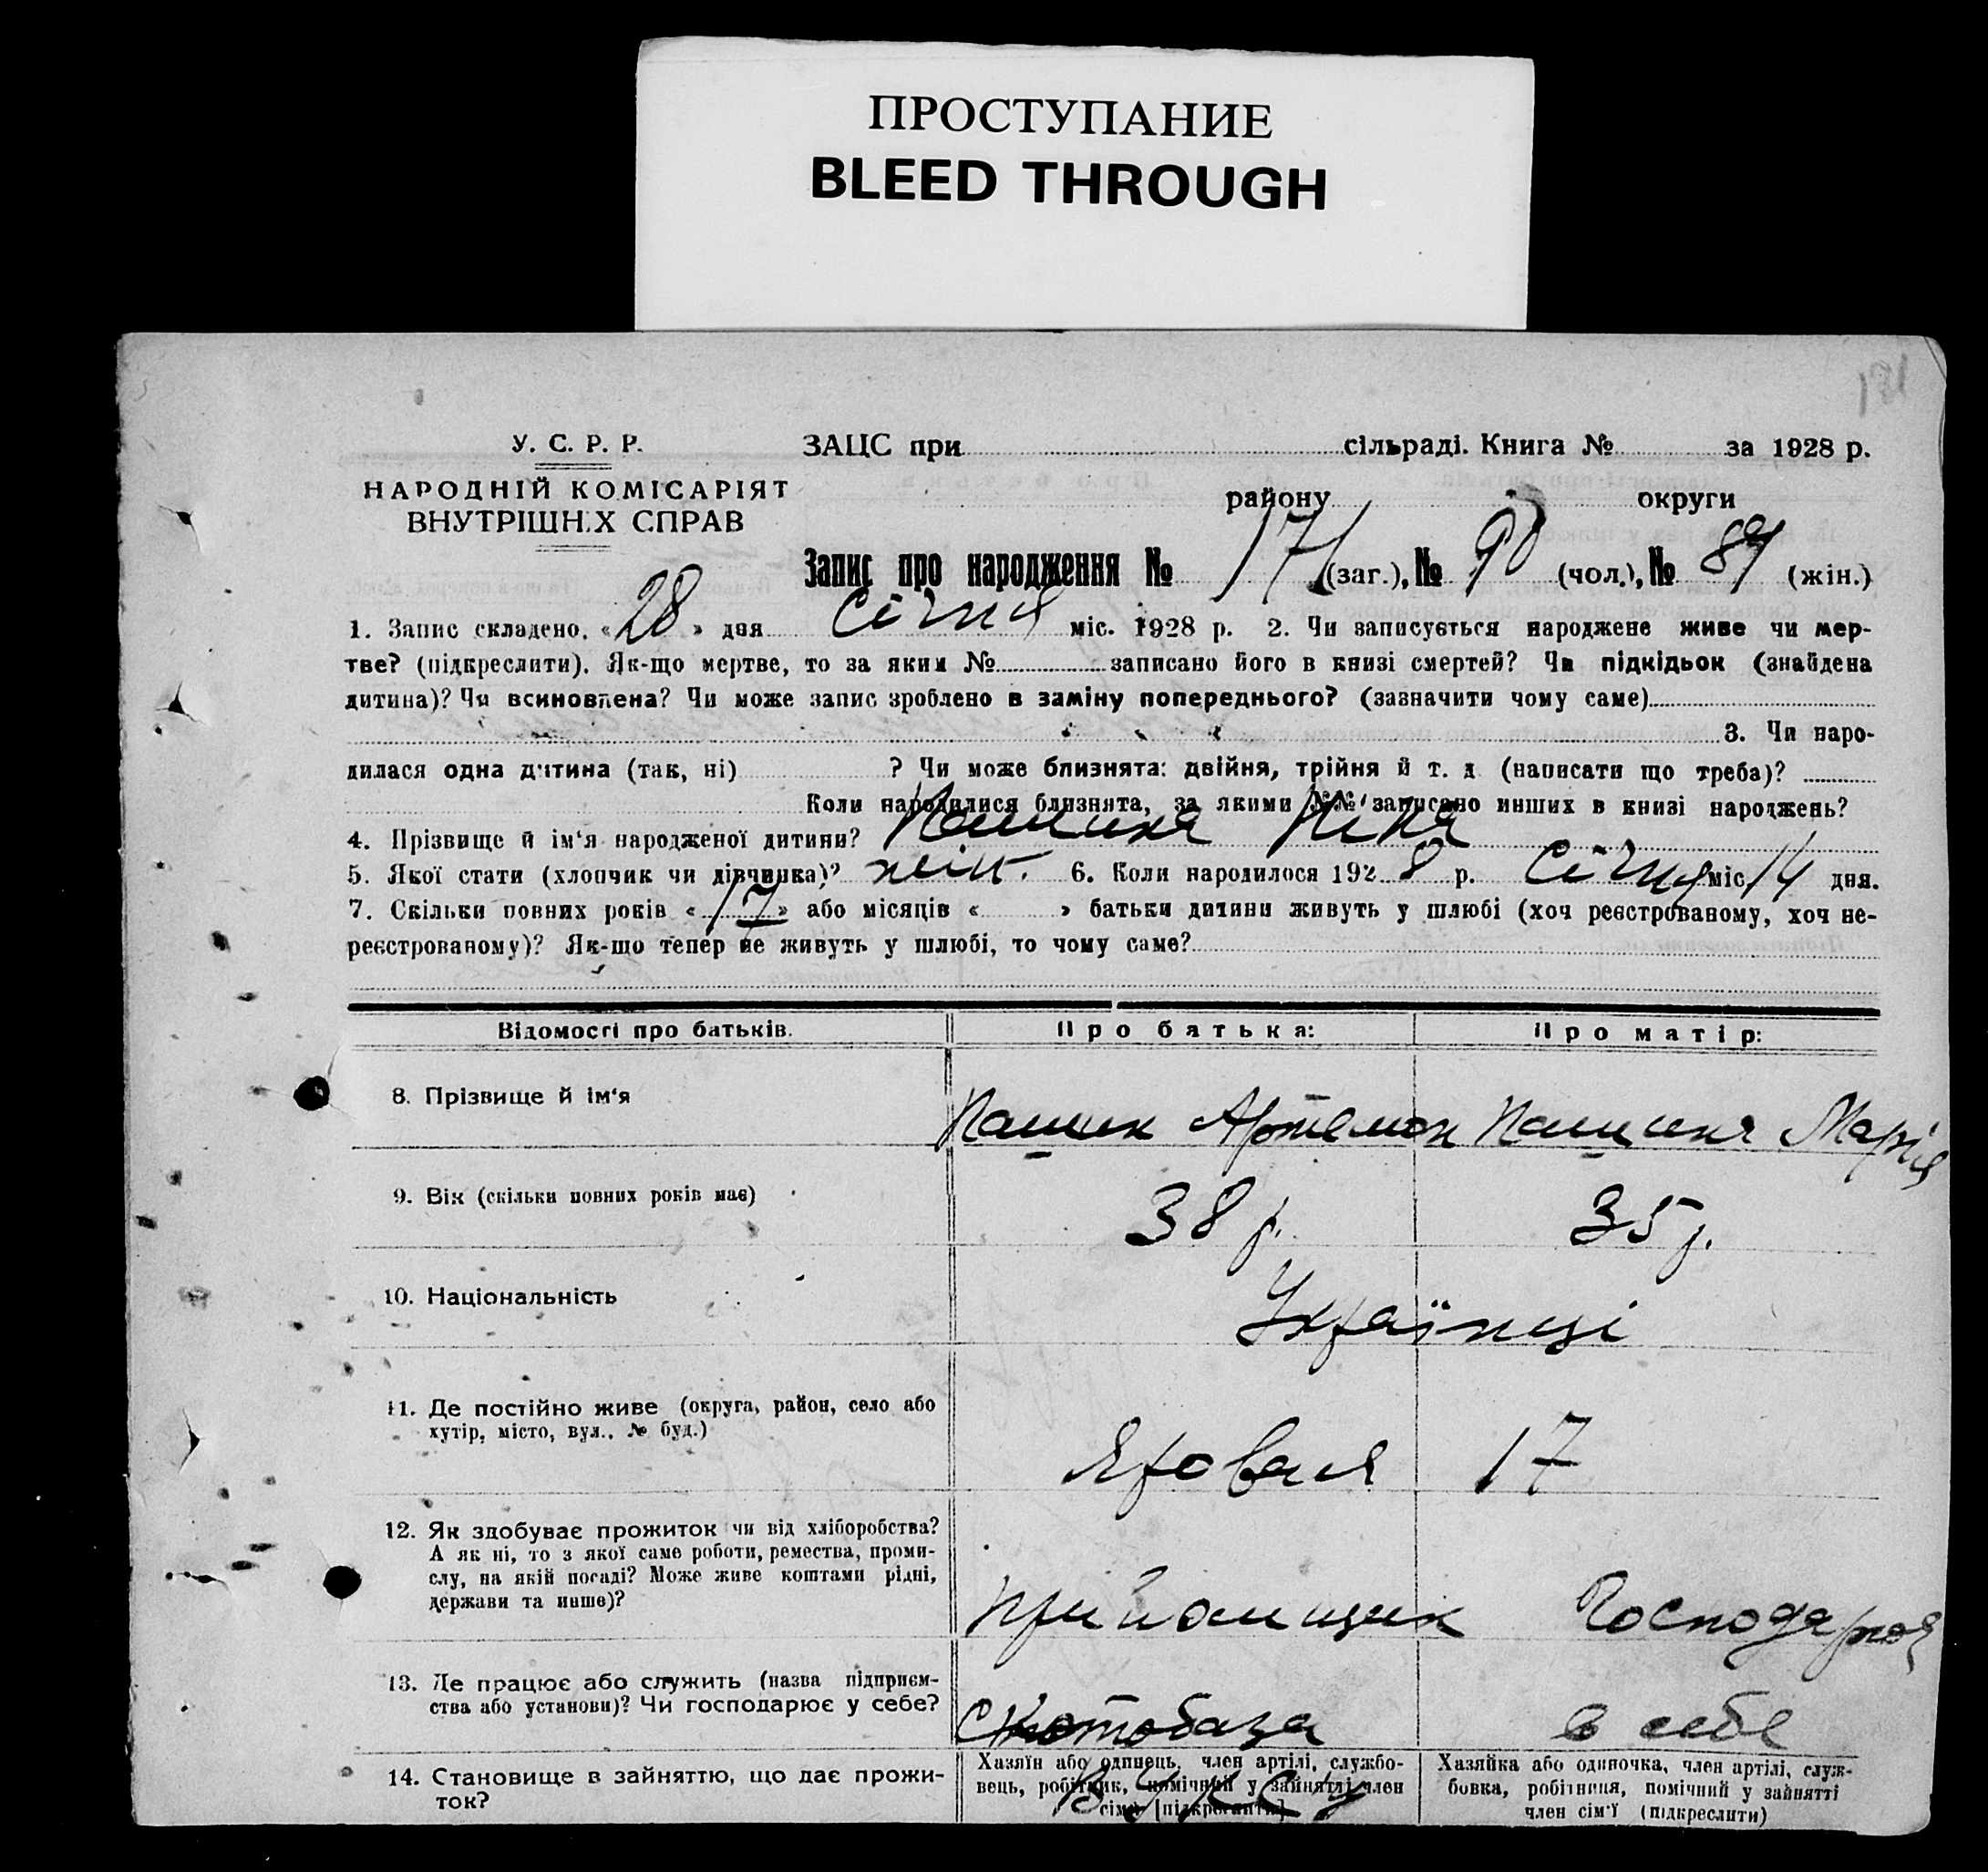 ПРОСТУПАНИЕ
BLEED THROUGH
181
У. С. Р. Р.
НАРОДНІЙ КОМІСАРІЯТ
ВНУТРІШНІХ СПРАВ
ЗАЦС при сільраді. Книга № за 1928 р.
району округи
Запис про народження № 171 (заг.), № 90 (чол.), № 89 (жін.)
1. Запис складено. «28» дня Січня міс. 1928 р. 2. Чи записується народжене живе чи мер-
тве? (підкреслити). Як-що мертве, то за яким № записано його в книзі смертей? Чи підкідьок (знайдена
дитина)? Чи всиновлена? Чи може запис зроблено в заміну попереднього? (зазначити чому саме)
3. Чи наро-
дилася одна дитина (так, ні) ? Чи може близнята: двійня, трійня й т. д (написати що треба)?
Коли народилися близнята, за якими №№ записано инших в книзі народжень?
4. Прізвище й ім‘я народженої дитини? Пашина Ніна
5. Якої стати (хлопчик чи дівчинка)? жін. 6. Коли народилося 1928 р. Січня міс 14 дня.
7. Скільки повних років «17» або місяців « » батьки дитини живуть у шлюбі (хоч реєстрованому, хоч не-
реєстрованому)? Як-що тепер не живуть у шлюбі, то чому саме?
Відомості про батьків. Про батька: Про матір:
8. Прізвище й ім‘я Пашин Артемон Пашина Марія
9. Вік (скільки повних років має) 38 р. 35 р.
10. Національність Українці
11. Де постійно живе (округа, район, село або
хутір, місто, вул., № буд.) Яровая 17
12. Як здобуває прожиток чи від хліборобства?
А як ні, то з якої саме роботи, ремества, проми-
слу, на якій посаді? Може живе коштами рідні,
держави та инше)? Прийомщик Господарка
13. Де працює або служить (назва підприєм-
ства або установи)? Чи господарює у себе? Скотобаза в себе
14. Становище в зайняттю, що дає прожи-
ток?
Хазяїн або одинець, член артілі, службо-
вець, робітник, помічний у зайнятті член
сім‘ї [підкреслити]
Хазяйка або одиночка, член артілі, служ-
бовка, робітниця, помічний у зайнятті
член сім‘ї (підкреслити)